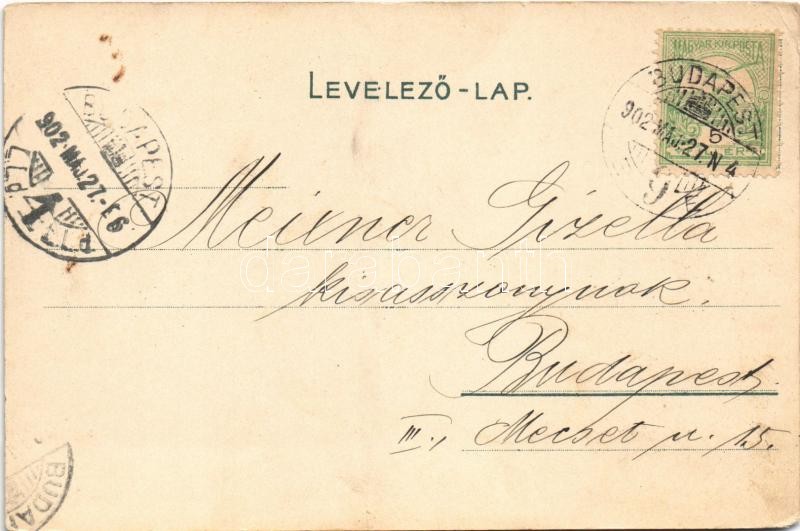 LEVELEZŐ-LAP.
MAGYAR KIR. POSTA
BUDAPEST
902 MÁJ. 27. N 4
9
BUDAPEST
902 MÁJ. 27.
1
Meixner Gizella
kisasszonynak.
Budapest.
III., Mecset u. 15.
BUDA
darabanth